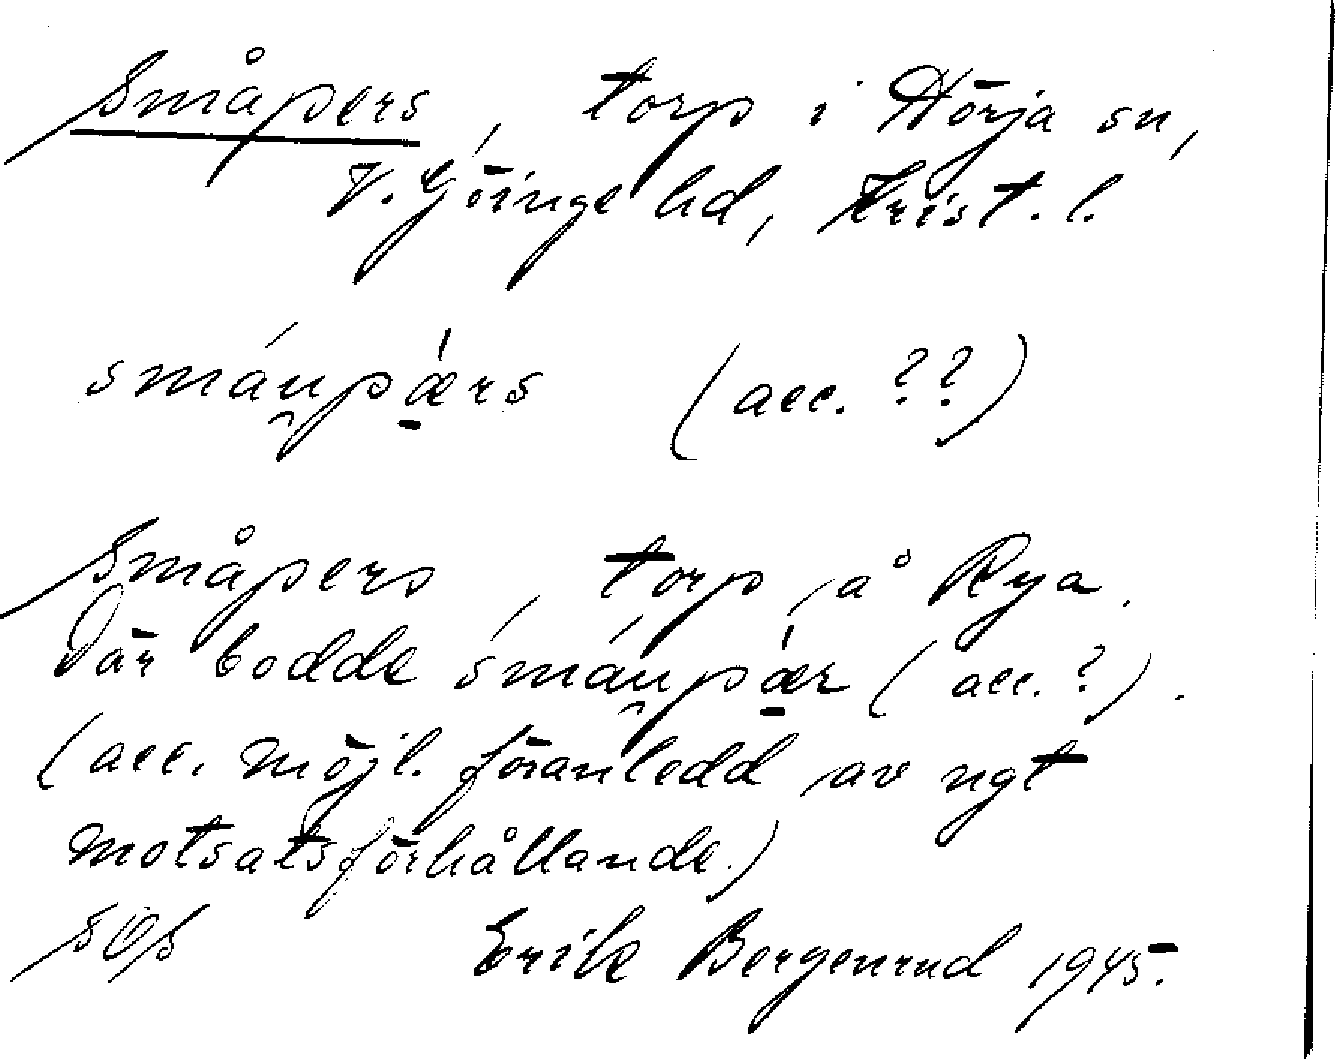 Småpers, torp i Hörja sn,
V. Göinge hd, Krist. l.
smáu̯pǽ̱rs (acc. ??)
Småpers, torp å Rya.
Där bodde smáu̯pǽ̱r (acc. ?).
(acc. möjl. föranledd av ngt
motsatsförhållande.)
Erik Bergenrud 1945.